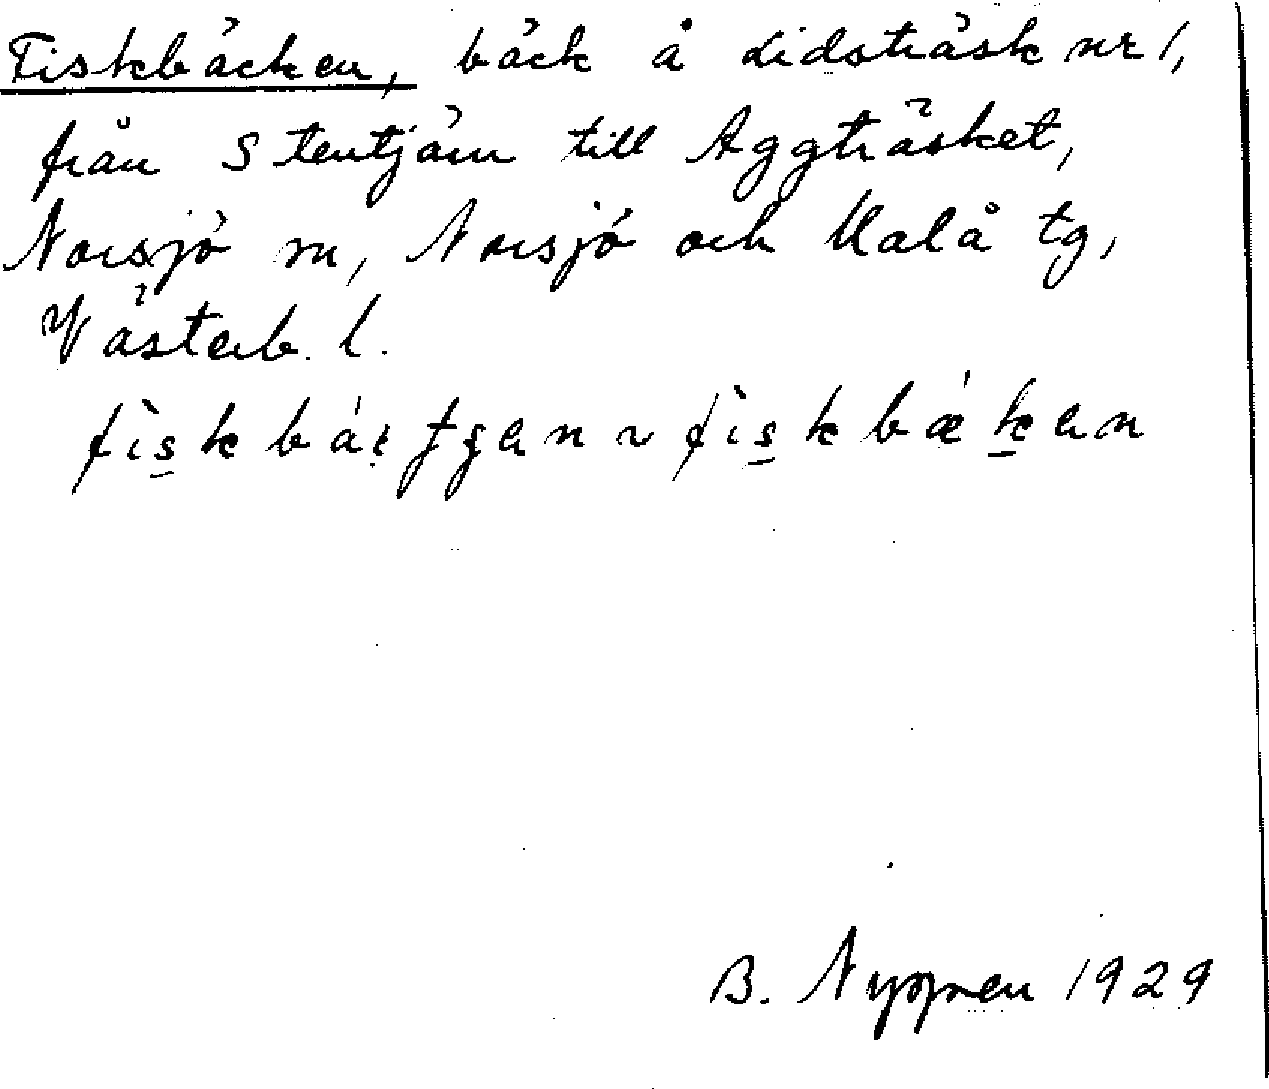 Fiskbäcken, bäck å Lidsträsk nr 1,
från Stentjärn till Aggträsket,
Norsjö sn, Norsjö och Malå tg,
Västerb. l.
B. Nygren 1929